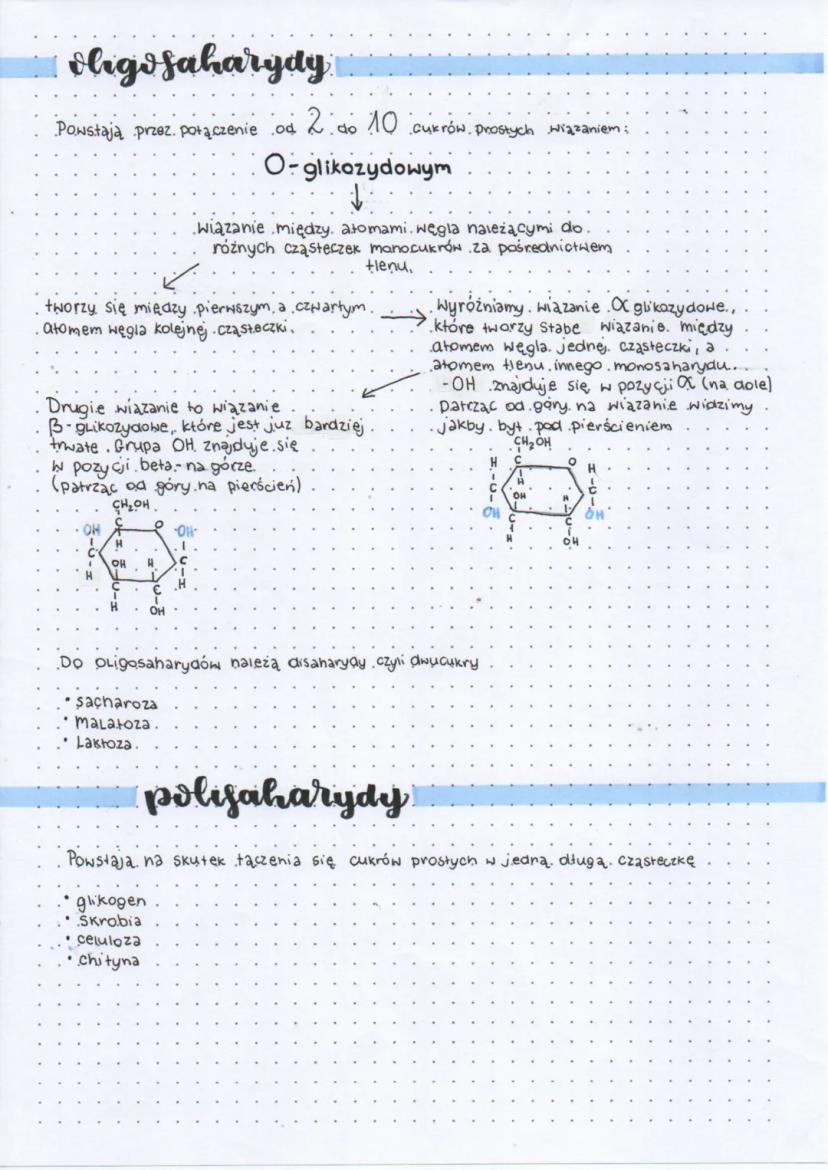 oligosaharydy
Powstają przez połączenie od 2 do 10 cukrów prostych wiązaniem:
O-glikozydowym
wiązanie między atomami węgla należącymi do
różnych cząsteczek monocukrów za pośrednictwem
tlenu.
tworzy się między pierwszym a czwartym
atomem węgla kolejnej cząsteczki.
Wyróżniamy wiązanie α glikozydowe,
które tworzy słabe wiązanie między
atomem węgla jednej cząsteczki, a
atomem tlenu innego monosaharydu.
-OH znajduje się w pozycji α (na dole)
patrząc od góry na wiązanie widzimy
jakby był pod pierścieniem
Drugie wiązanie to wiązanie
β-glikozydowe, które jest już bardziej
trwałe. Grupa OH znajduje się
w pozycji beta - na górze
(patrząc od góry na pierścień)
CH₂OH
H C O H
H
C OH H C
OH C C OH
H OH
CH₂OH
OH C O OH
H
C OH H C
H C C H
H OH
Do oligosaharydów należą disaharydy czyli dwucukry
• sacharoza
• Malatoza
• Laktoza
polisaharydy
Powstają na skutek łączenia się cukrów prostych w jedną długą cząsteczkę
• glikogen
• skrobia
• celuloza
• chityna